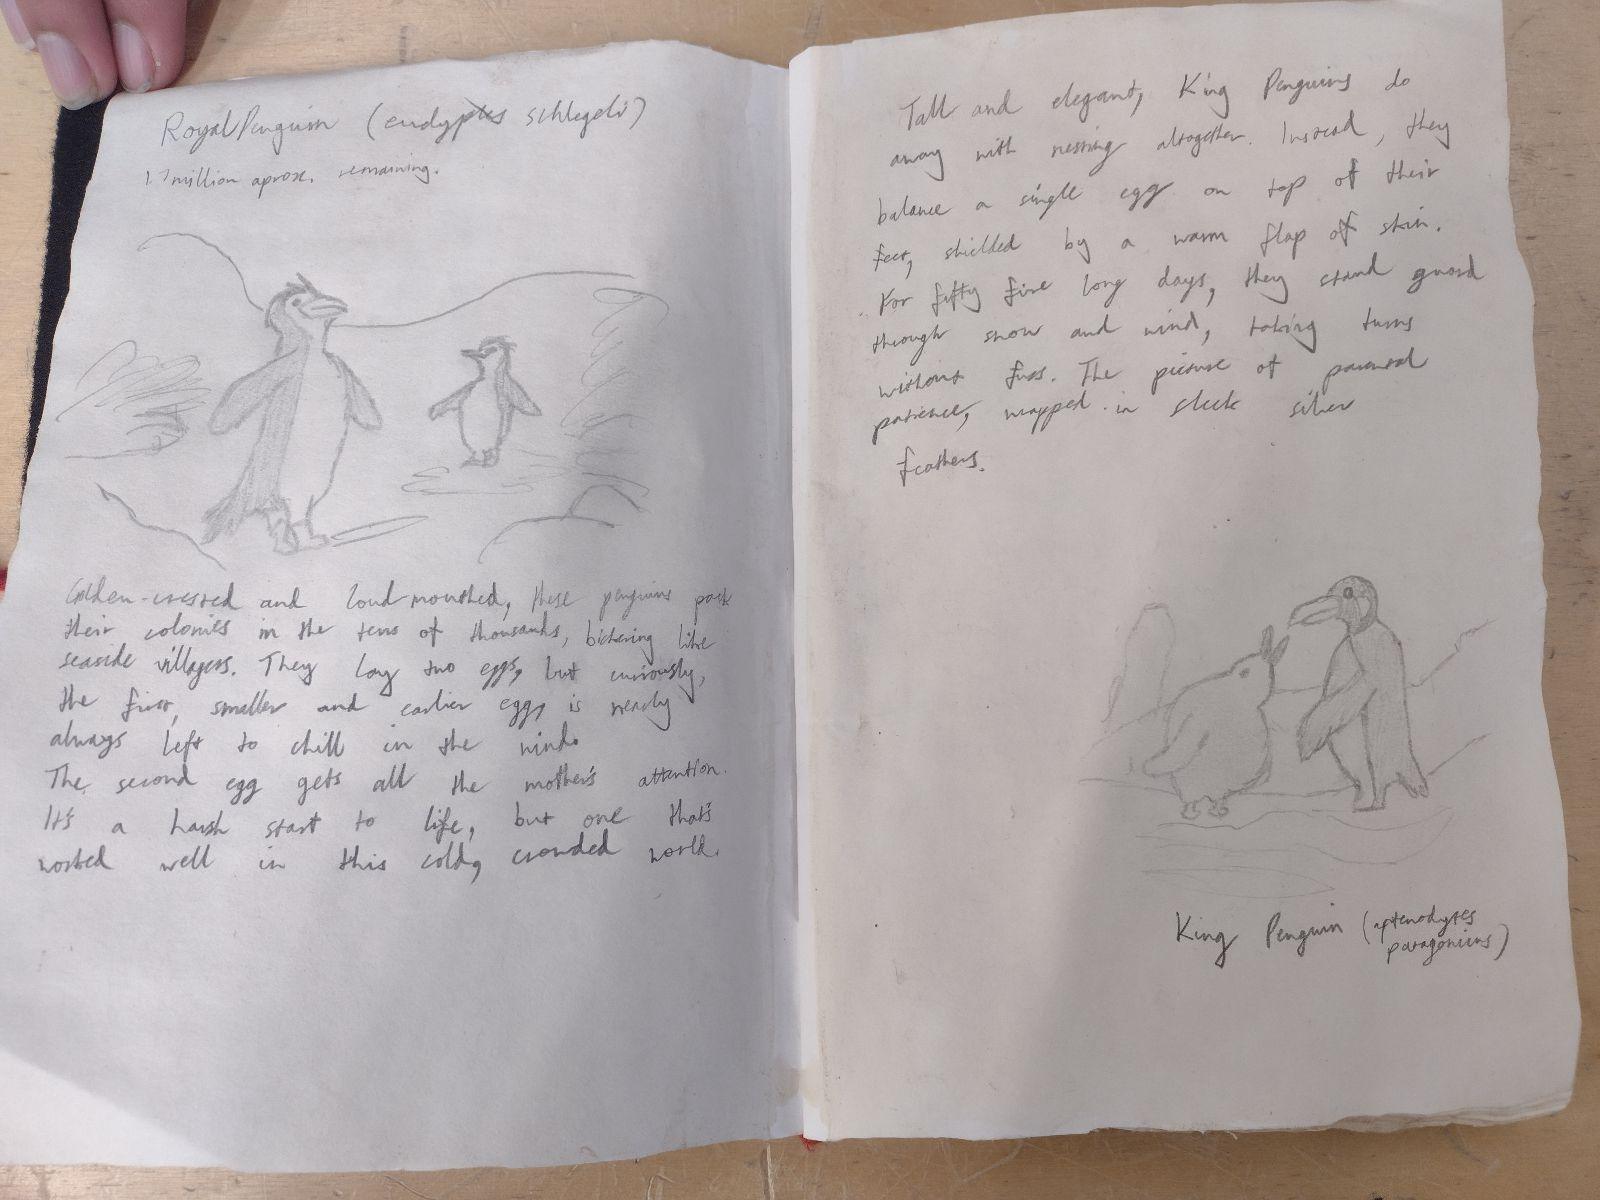 Royal Penguin (eudyptes schlegeli)
1.7 million aprox. remaining.
Golden-crested and loud-mouthed, these penguins pack
their colonies in the tens of thousands, bickering like
seaside villagers. They lay two eggs, but curiously,
the first, smaller and earlier egg, is nearly
always left to chill in the wind.
The second egg gets all the mother's attention.
It's a harsh start to life, but one that's
worked well in this cold, crowded world.
Tall and elegant, King Penguins do
away with nesting altogether. Instead, they
balance a single egg on top of their
feet, shielded by a warm flap of skin.
For fifty five long days, they stand guard
through snow and wind, taking turns
without fuss. The picture of parental
patience, wrapped in sleek silver
feathers.
King Penguin (aptenodytes
patagonicus)